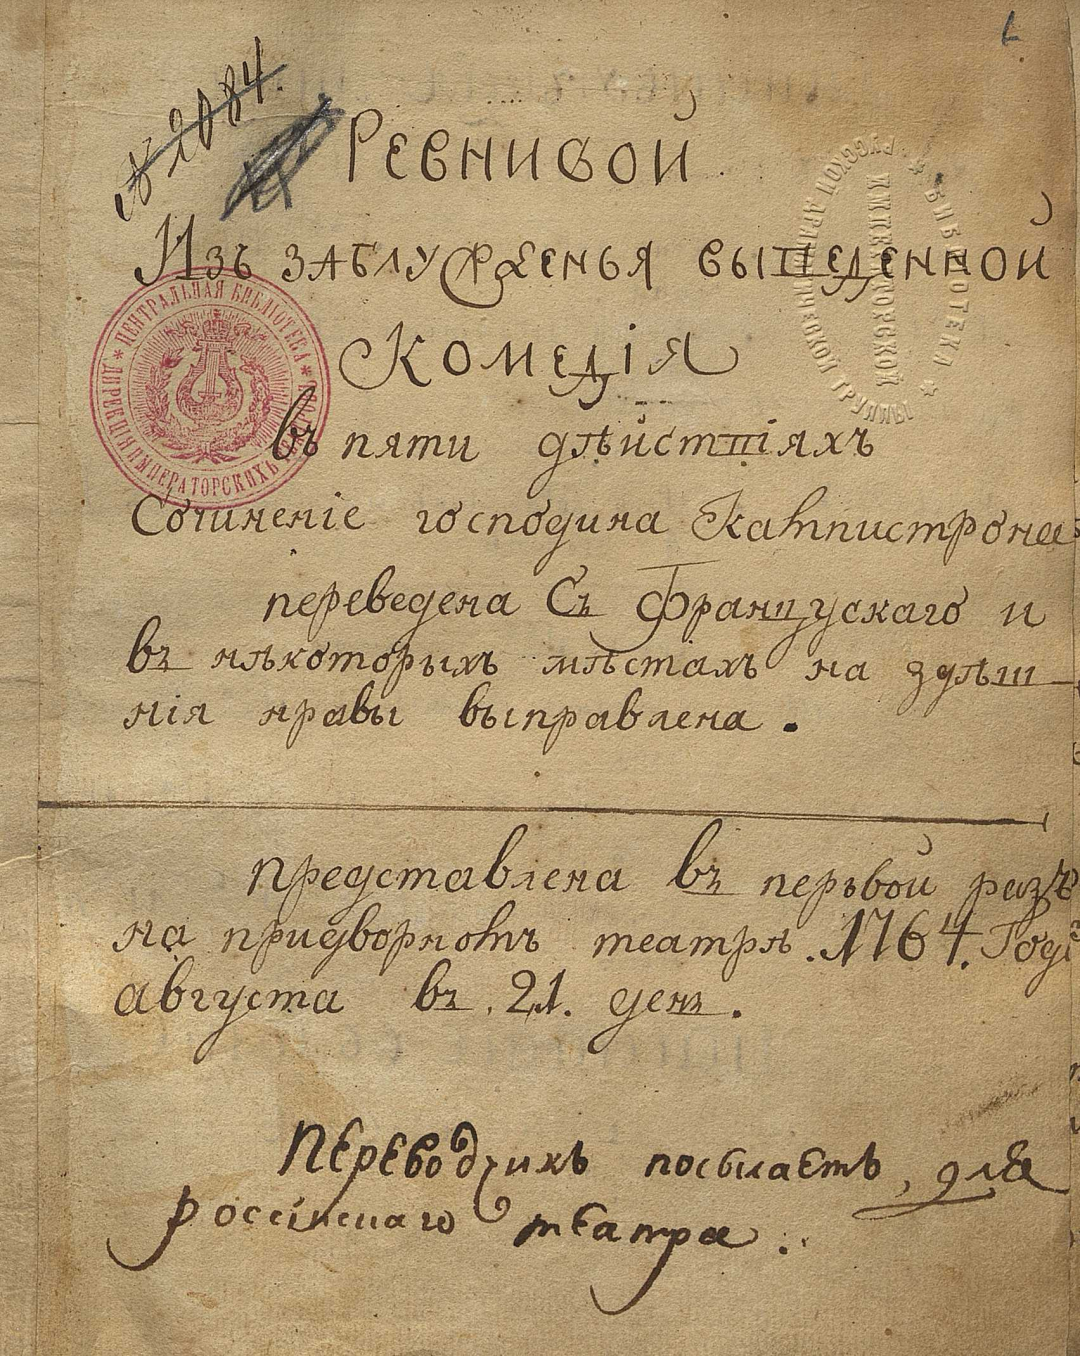 № 2084.
Ревнивой
Изъ заблужденья выведенной
Комедiя
въ пяти дѣйствiяхъ
Сочиненiе господина Кампистрона
переведена Съ Французскаго и
въ нѣкоторыхъ мѣстахъ на здѣш-
нiя нравы выправлена.
представлена въ перьвой разъ
на придворномъ театрѣ. 1764. Годѣ
августа въ. 21. день.
Переводчикъ посылаетъ, для
россiйскаго театра.
ЦЕНТРАЛЬНАЯ БИБЛIОТЕКА
ДИРЕКЦIЯ ИМПЕРАТОРСКИХЪ
* БИБЛIОТЕКА *
ИМПЕРАТОРСКОЙ
РУССКОЙ ДРАМАТИЧЕСКОЙ ТРУППЫ